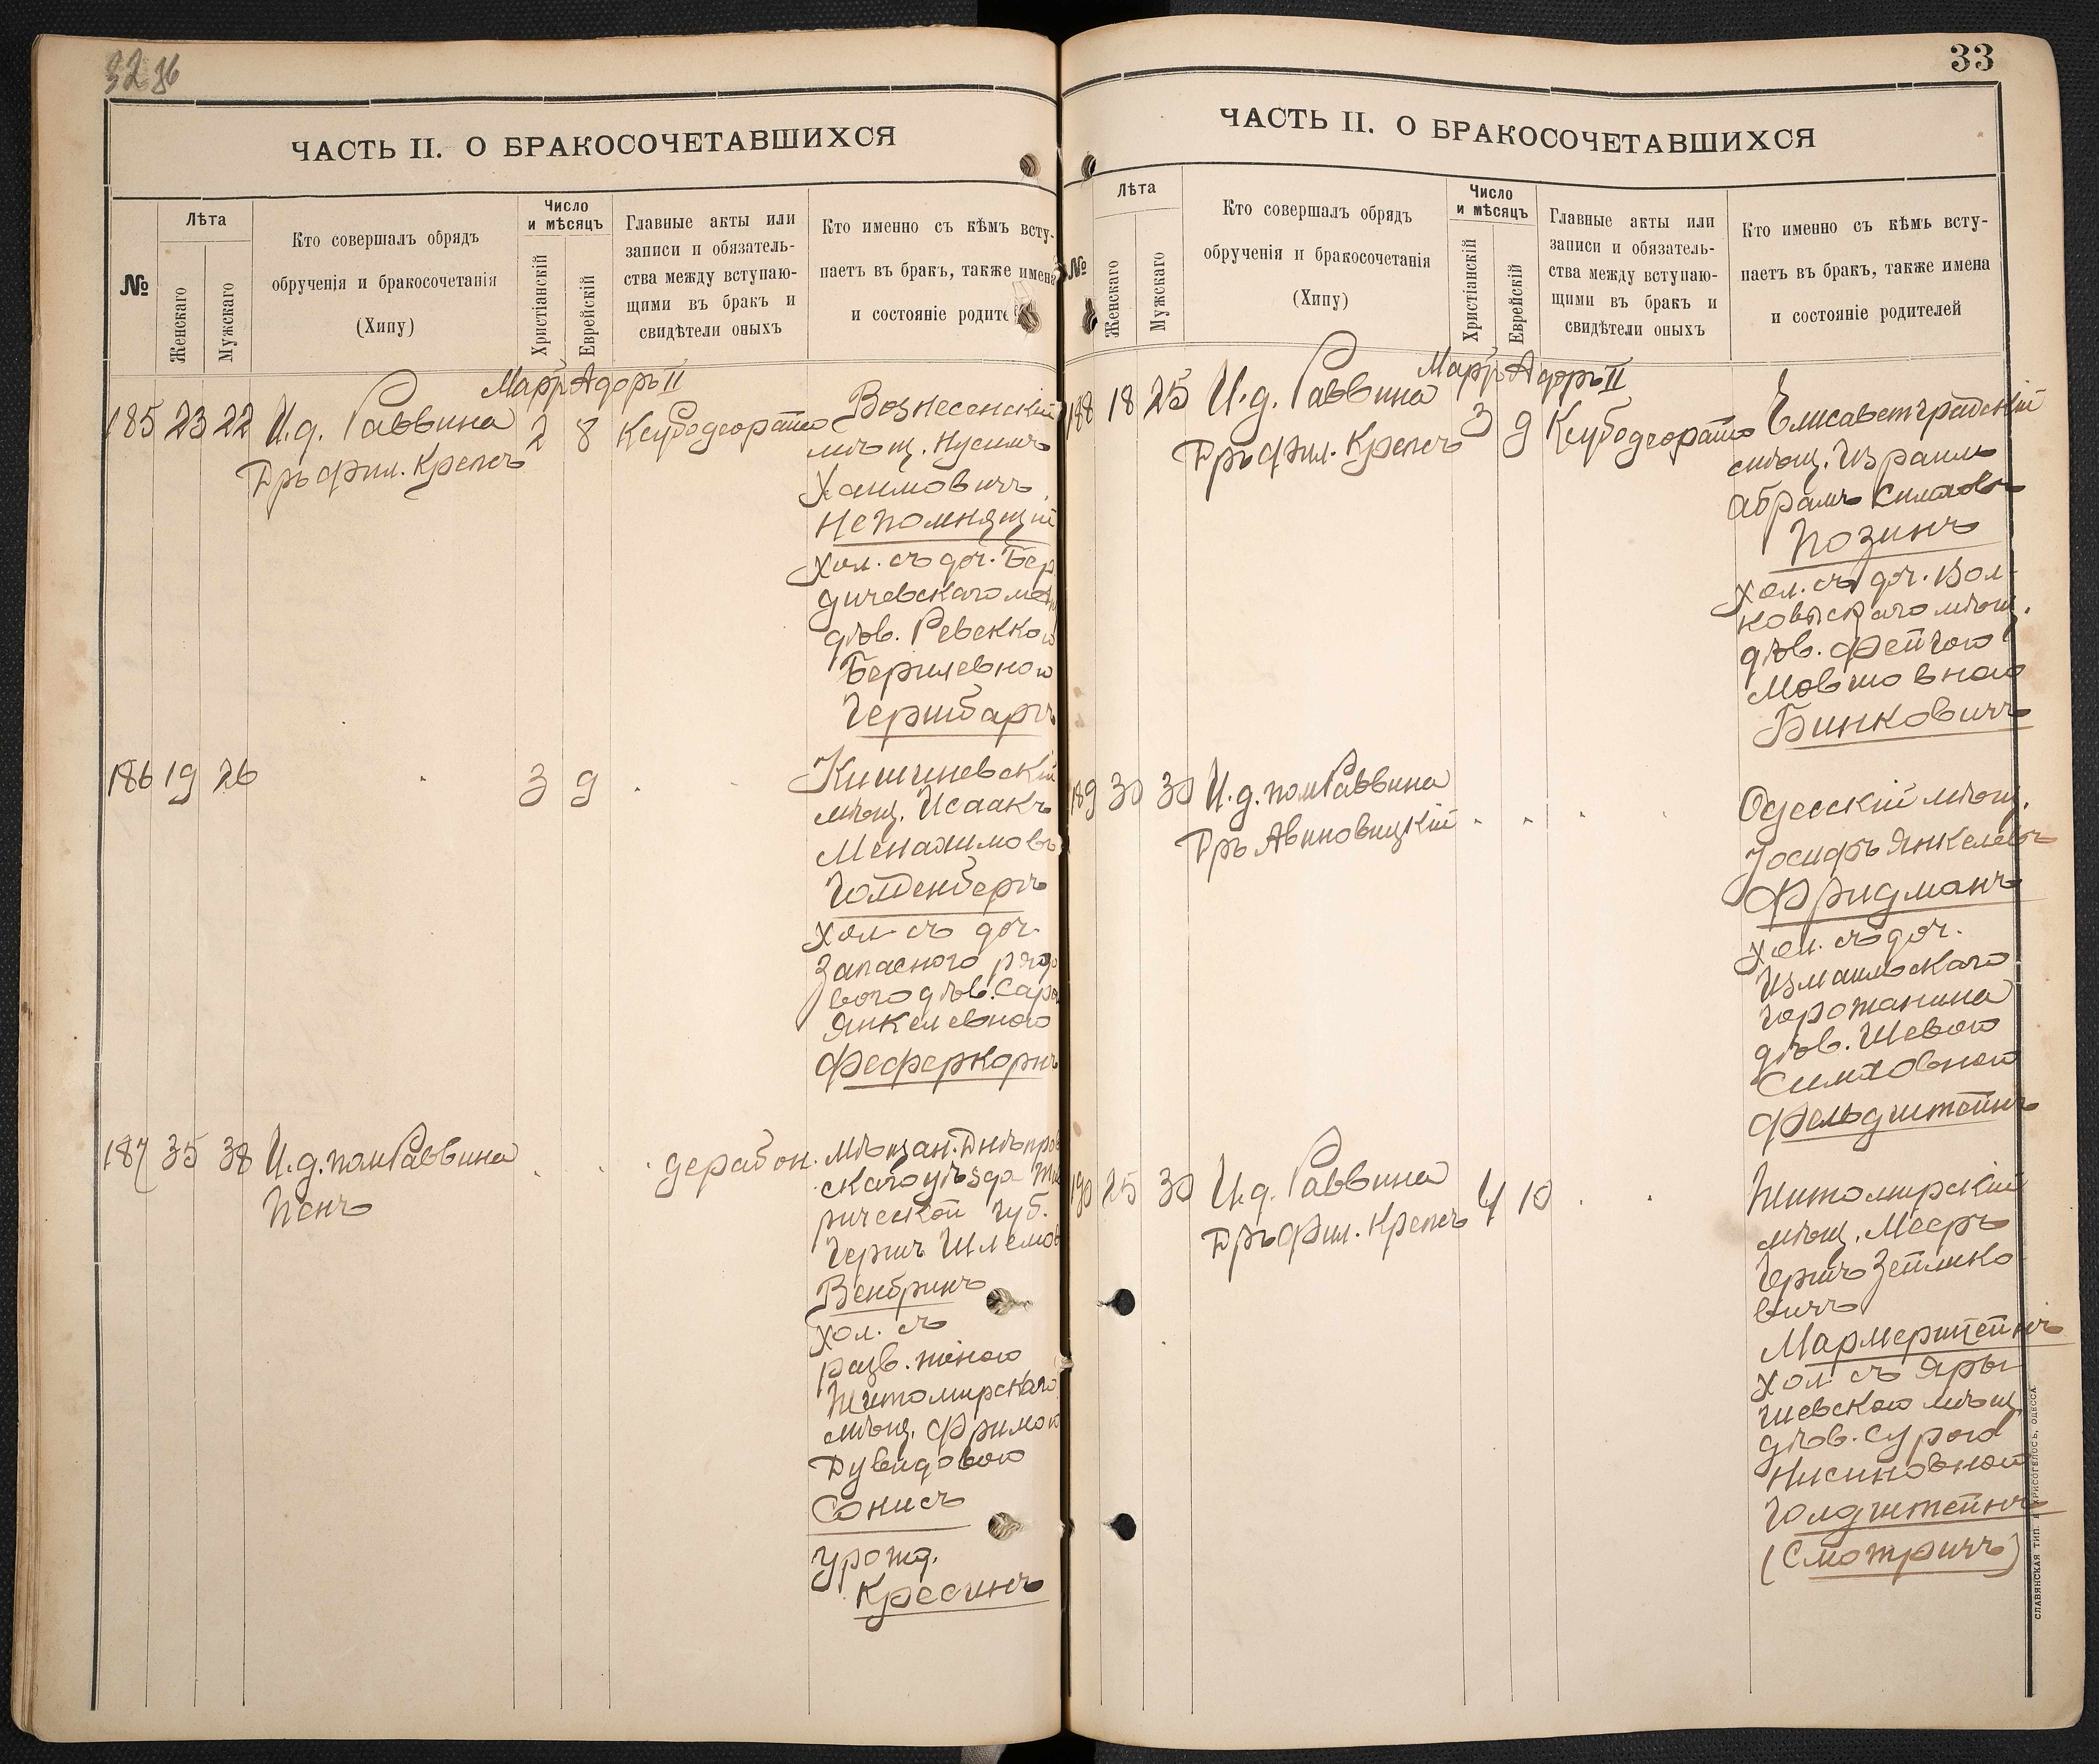 32 86
ЧАСТЬ II. О БРАКОСОЧЕТАВШИХСЯ
№
Лѣта
Женскаго
Мужскаго
Кто совершалъ обрядъ
обрученія и бракосочетанія
(Хипу)
Число
и мѣсяцъ
Христіанскій
Еврейскій
Главные акты или
записи и обязатель-
ства между вступаю-
щими въ бракъ и
свидѣтели оныхъ
Кто именно съ кѣмъ всту-
паетъ въ бракъ, также имена
и состояніе родите
Мартъ Адоръ II
185 23 22 И.д. Раввина 2 8
Дръ фил. Крепсъ
Вознесенскій
мѣщ. Нусимъ
Хаимовичъ
Непомнящій
хол. съ доч. Бер
дичевскаго мѣщ
дѣв. Ревеккою
Берилевною
Гершбаргъ
186 19 26 3 9
Кишиневскій
мѣщ. Исаакъ
Менахимовъ
Голденбергъ
хол. съ доч.
Запасного рядо
вого дѣв. Сарою
Янкелевною
Феферкорнъ
187 35 38 И.д. пом Раввина
Пенъ
дерабон.
Мѣщан. Днѣпров
скаго уѣзда Тав
рической губ.
Гершъ Шлемов
Вейбринъ
хол. съ
разв. женою
Житомирскаго
мѣщ. Фримою
Дувидовою
Сонисъ
урожд.
Кресинъ
33
ЧАСТЬ II. О БРАКОСОЧЕТАВШИХСЯ
№
Лѣта
Женскаго
Мужскаго
Кто совершалъ обрядъ
обрученія и бракосочетанія
(Хипу)
Число
и мѣсяцъ
Христіанскій
Еврейскій
Главные акты или
записи и обязатель-
ства между вступаю-
щими въ бракъ и
свидѣтели оныхъ
Кто именно съ кѣмъ всту-
паетъ въ бракъ, также имена
и состояніе родителей
Мартъ Адоръ II
188 18 25 И.д. Раввина 3 9
Дръ фил. Крепсъ
Елисаветградскій
мѣщ. Израиль
Абрамъ Симхов
Позинъ
хол. съ доч. Вол-
ковыскаго мѣщ.
дѣв. Фейгою
Мовшовною
Бинковичъ
189 30 30 И.д. пом Раввина
Дръ Авиновицкій
Одесскій мѣщ.
Іосифъ Янкелев
Фридманъ
хол. съ доч.
Измаильскаго
горожанина
дѣв. Шевою
Симховною
Фельдштейнъ
190 25 30 И.д. Раввина 4 10
Дръ фил. Крепсъ
Житомирскій
мѣщ. Мееръ
Гершъ Зейлико
вичъ
Мармерштейнъ
хол. съ Яры
шевскою мѣщ
дѣв. Сурою
Нисиновною
Голдштейнъ
(Смотричъ)
СЛАВЯНСКАЯ ТИП. ХРИСОГЕЛОСЪ, ОДЕССА